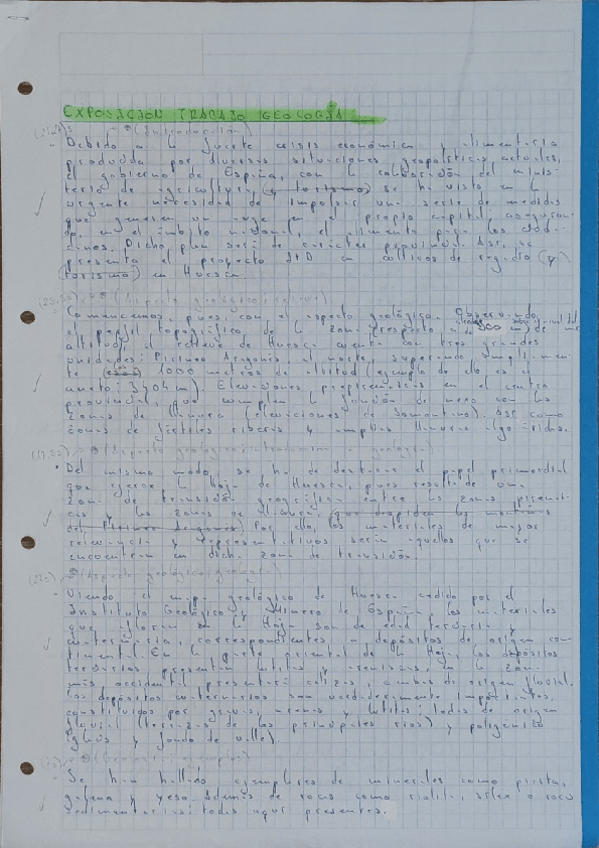 EXPOSICIÓN TRABAJO GEOLOGÍA
(Introducción)
Debido a la fuerte crisis económica y alimentaria
producida por diversas situaciones geopolíticas actuales,
el gobierno de España, con la colaboración del minis-
terio de agricultura (y turismo) se ha visto en la
urgente necesidad de impulsar una serie de medidas
que generen un auge en el propio capital, aseguran-
do, en el ámbito nacional, el alimento para los ciuda-
danos. Dicho plan será de carácter provincial. Así, se
presenta el proyecto I+D en cultivos de regadío (y
turismo) en Huesca.
(Aspecto geológico: relieve)
Comencemos, pues, con el aspecto geológico. Observando
el perfil topográfico de la zona (respecto a 500 m) de
altitud, el relieve de Huesca cuenta con tres grandes
unidades: Pirineo Aragonés, al norte, superando ampliamen-
te 1000 metros de altitud (ejemplo de ello es el
aneto: 3404 m). Elevaciones prepirenaicas en el centro
provincial, que cumplen la función de nexo con las
zonas de llanura (elevaciones de Somontano). Así como
zonas de fértiles riberas y amplias llanuras
(Aspecto geológico: introducción a geología)
Del mismo modo, se ha de destacar el papel primordial
que ejerce la Hoja de Huesca, pues resulta de una
zona de transición geográfica entre las zonas pirenai-
cas y las zonas de llanura, (que despiden las montañas
del Pirineo aragonés) Por ello, los materiales de mayor
relevancia y representativos serán aquellos que se
encuentren en dicha zona de transición.
(Aspecto geológico: geología)
Viendo el mapa geológico de Huesca cedido por el
Instituto Geológico y Minero de España, los materiales
que afloran en la Hoja son de edad terciaria y
cuaternaria, correspondientes a depósitos de origen con-
tinental. En la parte oriental de la Hoja, los depósitos
terciarios presentan lutitas y areniscas, en la zona
más occidental presentará calizas, ambas de origen fluvial.
Los depósitos cuaternarios son verdaderamente importantes,
constituidos por gravas, arenas y lutitas; todas de origen
fluvial (terrazas de los principales ríos) y poligénico
(glacis y fondo de valle).
Se han hallado ejemplares de minerales como pirita,
galena y yeso. Además de rocas como riolita, sílex o rocas
sedimentarias; todas aquí presentes.